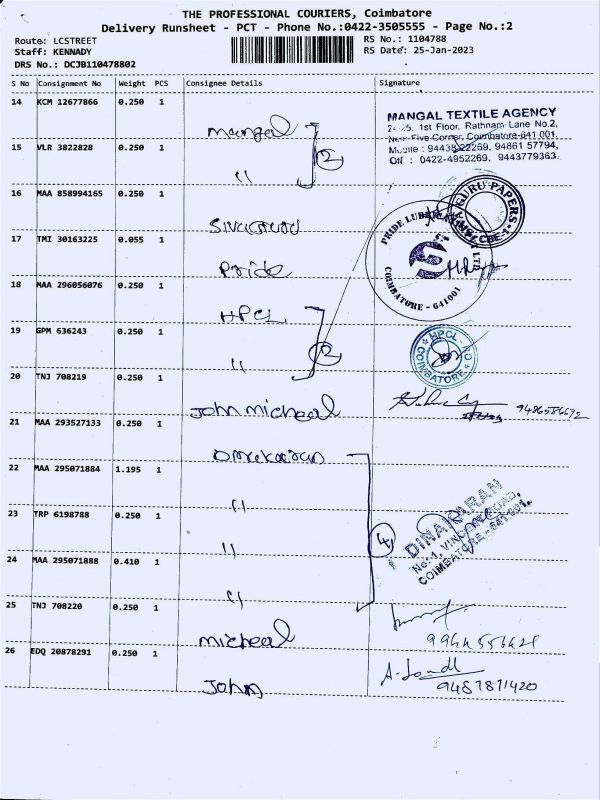 THE PROFESSIONAL COURIERS, Coimbatore
Delivery Runsheet - PCT - Phone No.:0422-3505555 - Page No.:2
Route: LCSTREET
Staff: KENNADY
DRS No.: DCJB110478802
RS No.: 1104788
RS Date: 25-Jan-2023
S No Consignment No Weight PCS Consignee Details Signature
14 KCM 12677866 0.250 1
Mangal
MANGAL TEXTILE AGENCY
1st Floor, Rathnam Lane No.2,
Five Corner, Coimbatore-641 001.
Mobile : 94438 22269, 94861 57794,
Off : 0422-4952269, 9443779363.
15 VLR 3822828 0.250 1
" 2
16 MAA 858994165 0.250 1
GURU PAPERS
CBE-1
17 TMI 30163225 0.055 1
Pride
PRIDE
COIMBATORE - 641001
18 MAA 296056076 0.250 1
HPCL
19 GPM 636243 0.250 1
" 2
HPCL
COIMBATORE
20 TNJ 708219 0.250 1
John micheal
21 MAA 293527133 0.250 1
22 MAA 295071884 1.195 1
"
23 TRP 6198788 0.250 1
" 4
DINAKARAN
COIMBATORE - 641 001.
24 MAA 295071888 0.410 1
"
25 TNJ 708220 0.250 1
micheal
26 EDQ 20878291 0.250 1
John
9487871420